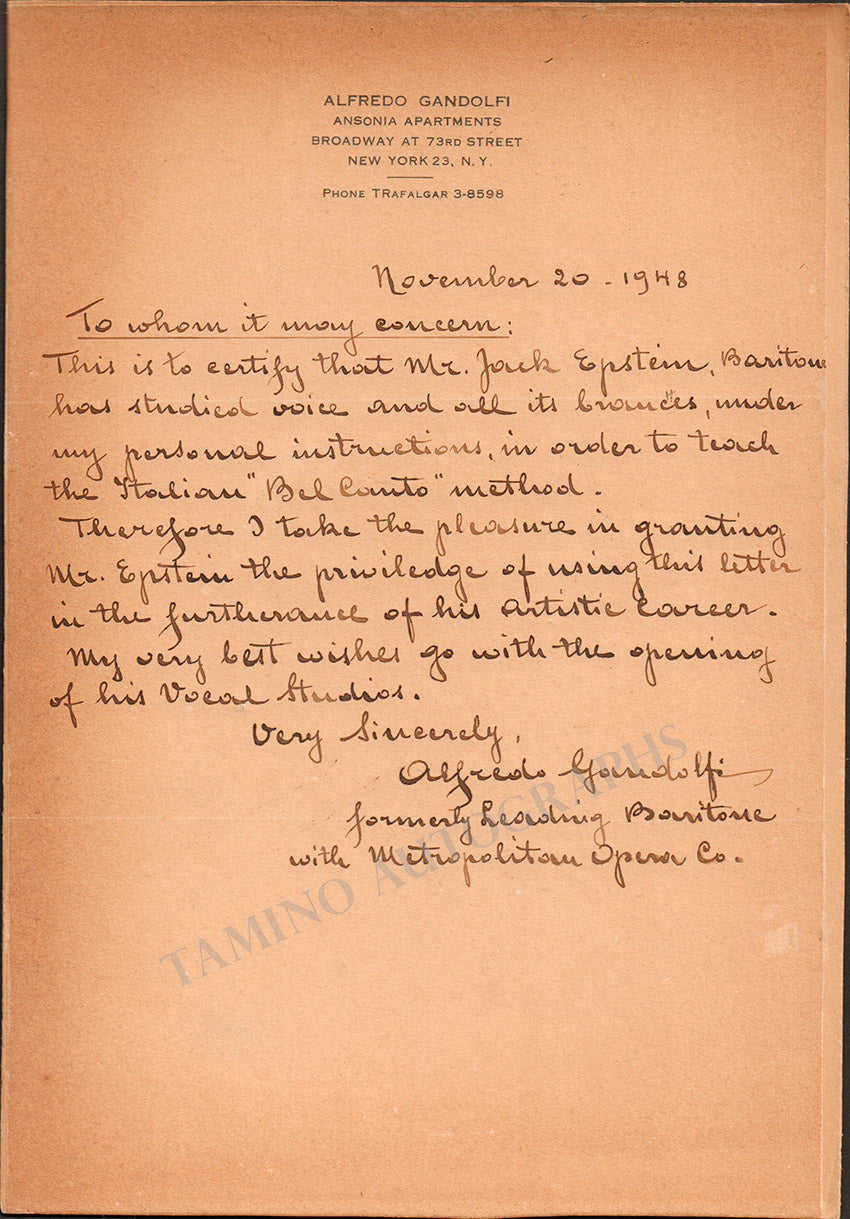 ALFREDO GANDOLFI
ANSONIA APARTMENTS
BROADWAY AT 73RD STREET
NEW YORK 23, N.Y.
PHONE TRAFALGAR 3-8598
November 20 - 1948
To whom it may concern:
This is to certify that Mr. Jack Epstein, Baritone
has studied voice and all its brances, under
my personal instructions, in order to teach
the Italian "Bel Canto" method.
Therefore I take the pleasure in granting
Mr. Epstein the priviledge of using this letter
in the furtherance of his artistic career.
My very best wishes go with the opening
of his Vocal Studios.
Very Sincerely,
Alfredo Gandolfi
formerly Leading Baritone
with Metropolitan Opera Co.
TAMINO AUTOGRAPHS